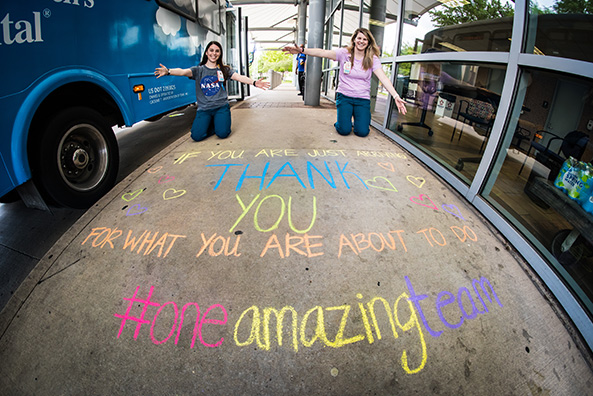 n's
ital®
US DOT 1780325
NASA
IF YOU ARE JUST ARRIVING
THANK
YOU
FOR WHAT YOU ARE ABOUT TO DO
#one amazing team